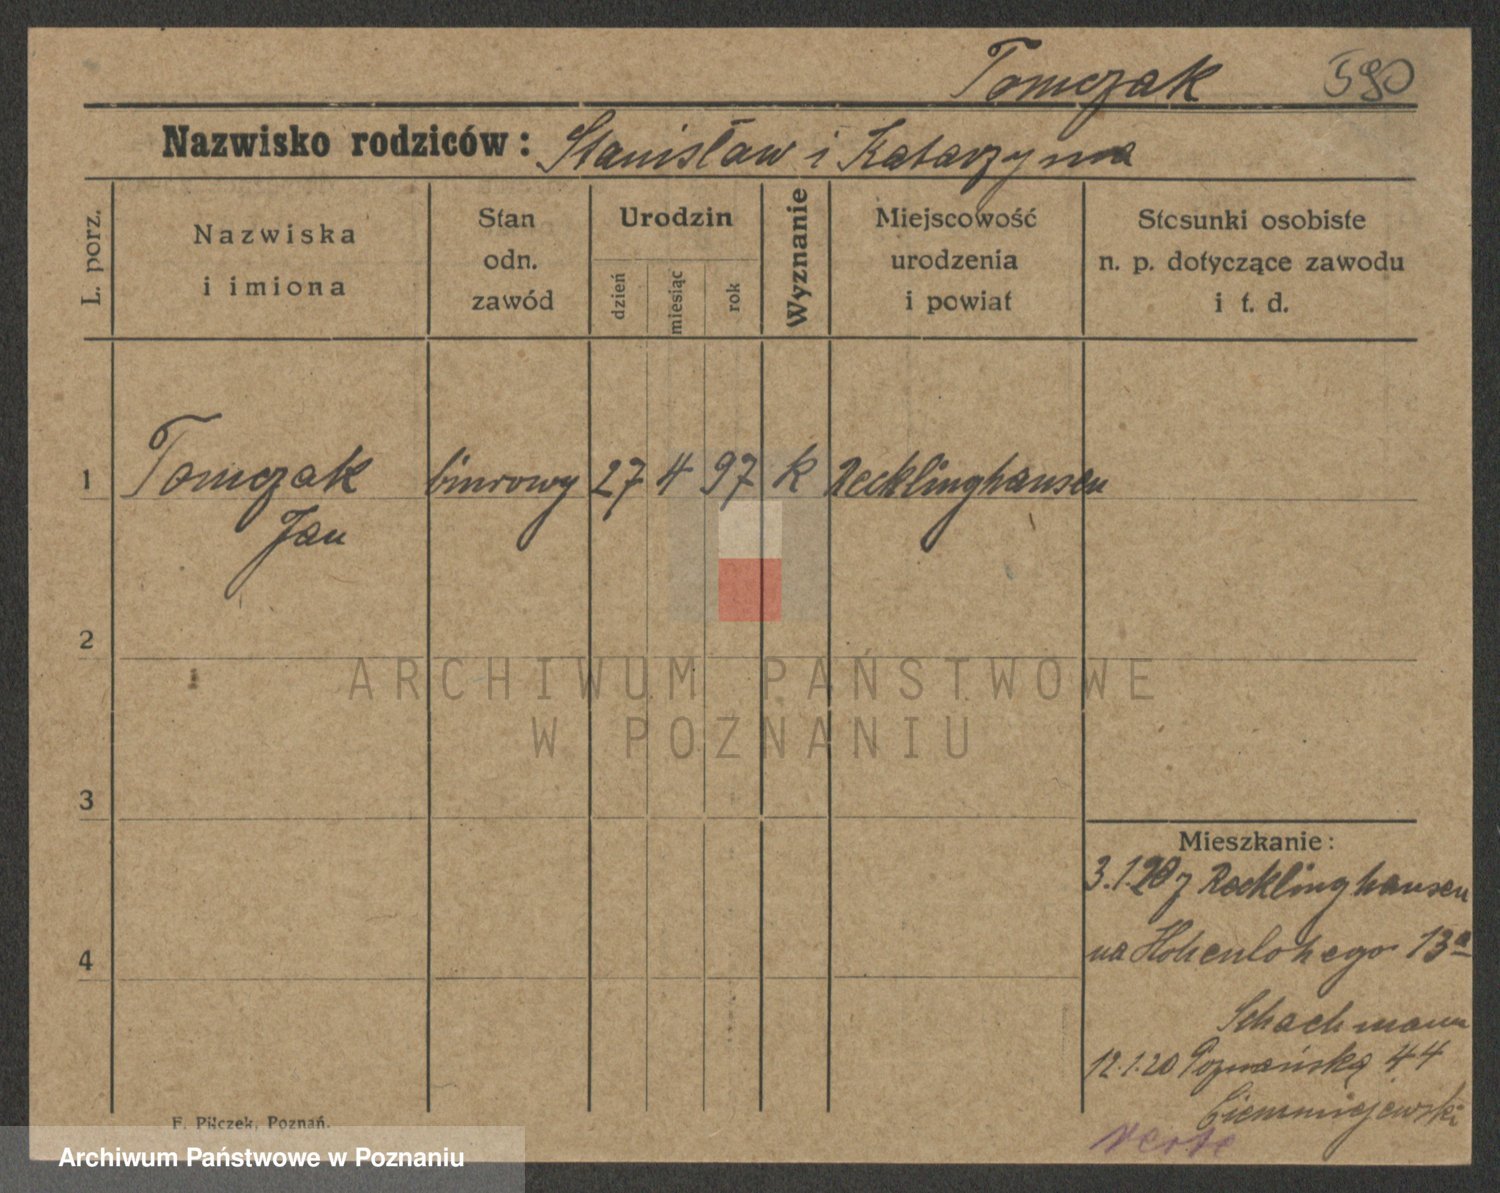 Tomczak 590
Nazwisko rodziców: Stanisław i Katarzyna
L. porz.
Nazwiska
i imiona
Stan
odn.
zawód
Urodzin
dzień
miesiąc
rok
Wyznanie
Miejscowość
urodzenia
i powiat
Stosunki osobiste
n. p. dotyczące zawodu
i t. d.
1 Tomczak biurowy 27 4 97 k Recklinghausen
Jan
2
ARCHIWUM PAŃSTWOWE
W POZNANIU
3
Mieszkanie:
3.1.20 z Recklinghausen
na Hohenlohego 13a
4
Schachmann
12.1.20 Poznańską 44
Ciemniejewski
verte
F. Pilczek, Poznań.
Archiwum Państwowe w Poznaniu